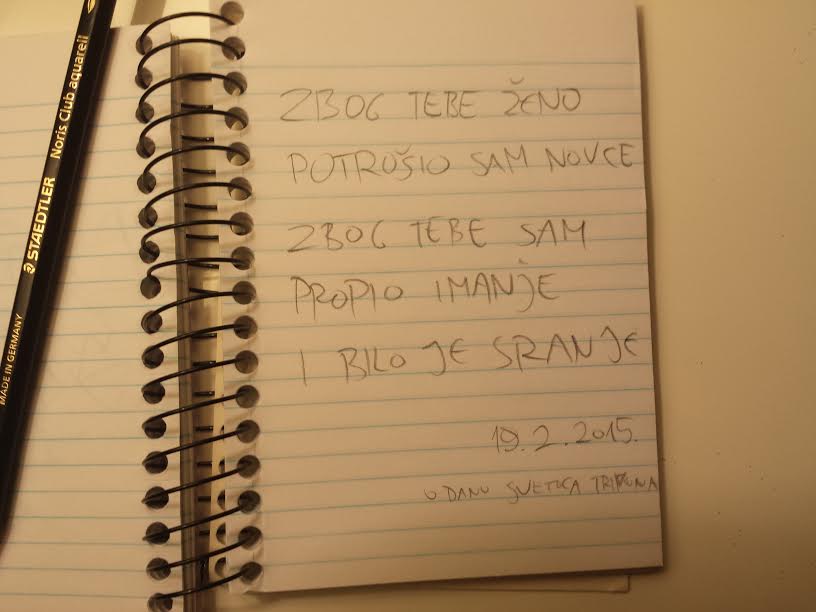 ZBOG TEBE ŽENO
POTROŠIO SAM NOVCE
ZBOG TEBE SAM
PROPIO IMANJE
I BILO JE SRANJE
19.2.2015.
U DANU SVETOGA TRIPUNA
STAEDTLER Noris Club aquarell
MADE IN GERMANY